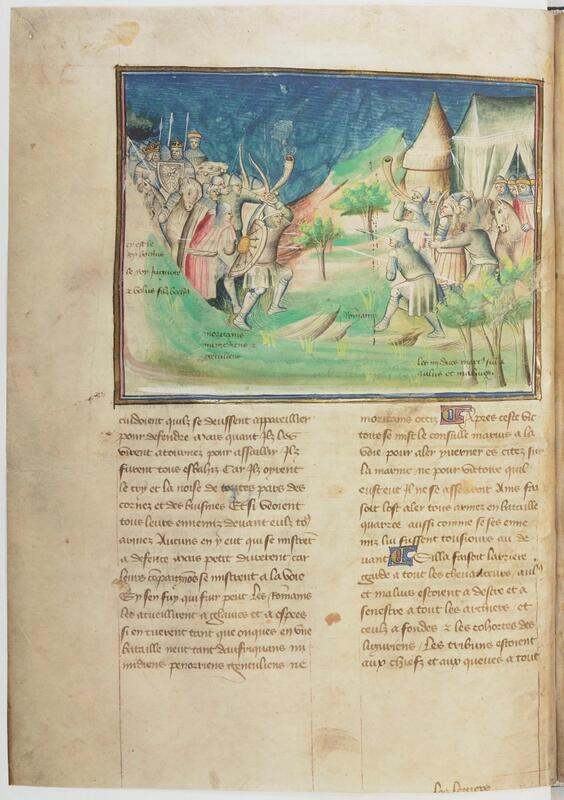 cy est le
roy bochus
le roy jugurte
& bolus filz bochus
moritains
numidiens &
getuliens
Romains
les
aulus et malius
cuidoient quilz se deussent appareiller
pour defendre mais quant Ilz les
virent atournez pour assaillir / Ilz
furent tous esbahiz Car Ilz oyrent
le cry et la noise de toutes pars des
cornez et des businez Et si veoient
tous leurs ennemiz devant eulz to9
armez Aucuns en y eut qui se mistrent
a defence mais petit durerent car
leurs compaignons se mistrent a la voie
Cy sen fuy qui fuir peut Les Romains
les acueillirent a glaives et a espees
si en tuerent tant que onques en une
bataille neut tant daufriquans nu
midiens penoriens & getuliens ne
moritains occiz Apres ceste vic
toire se mist le consulle marius a la
voie pour aler yverner es citez sur
la marine / ne pour victoire quil
eust eue Il ne se asseuroit Ains fai
soit lost aler tous armez en bataille
quarree aussi comme se ses enne
miz lui fussent tousiours au de
vant Silla faisoit larriere
garde a tout les chevaucheurs / aul9
et malius estoient a destre et a
senestre a tout les archiers et
ceulz a fondes & les cohortes des
liguriens / Les tribuns estoient
aux chiefz et aux queues a tout
les legiers